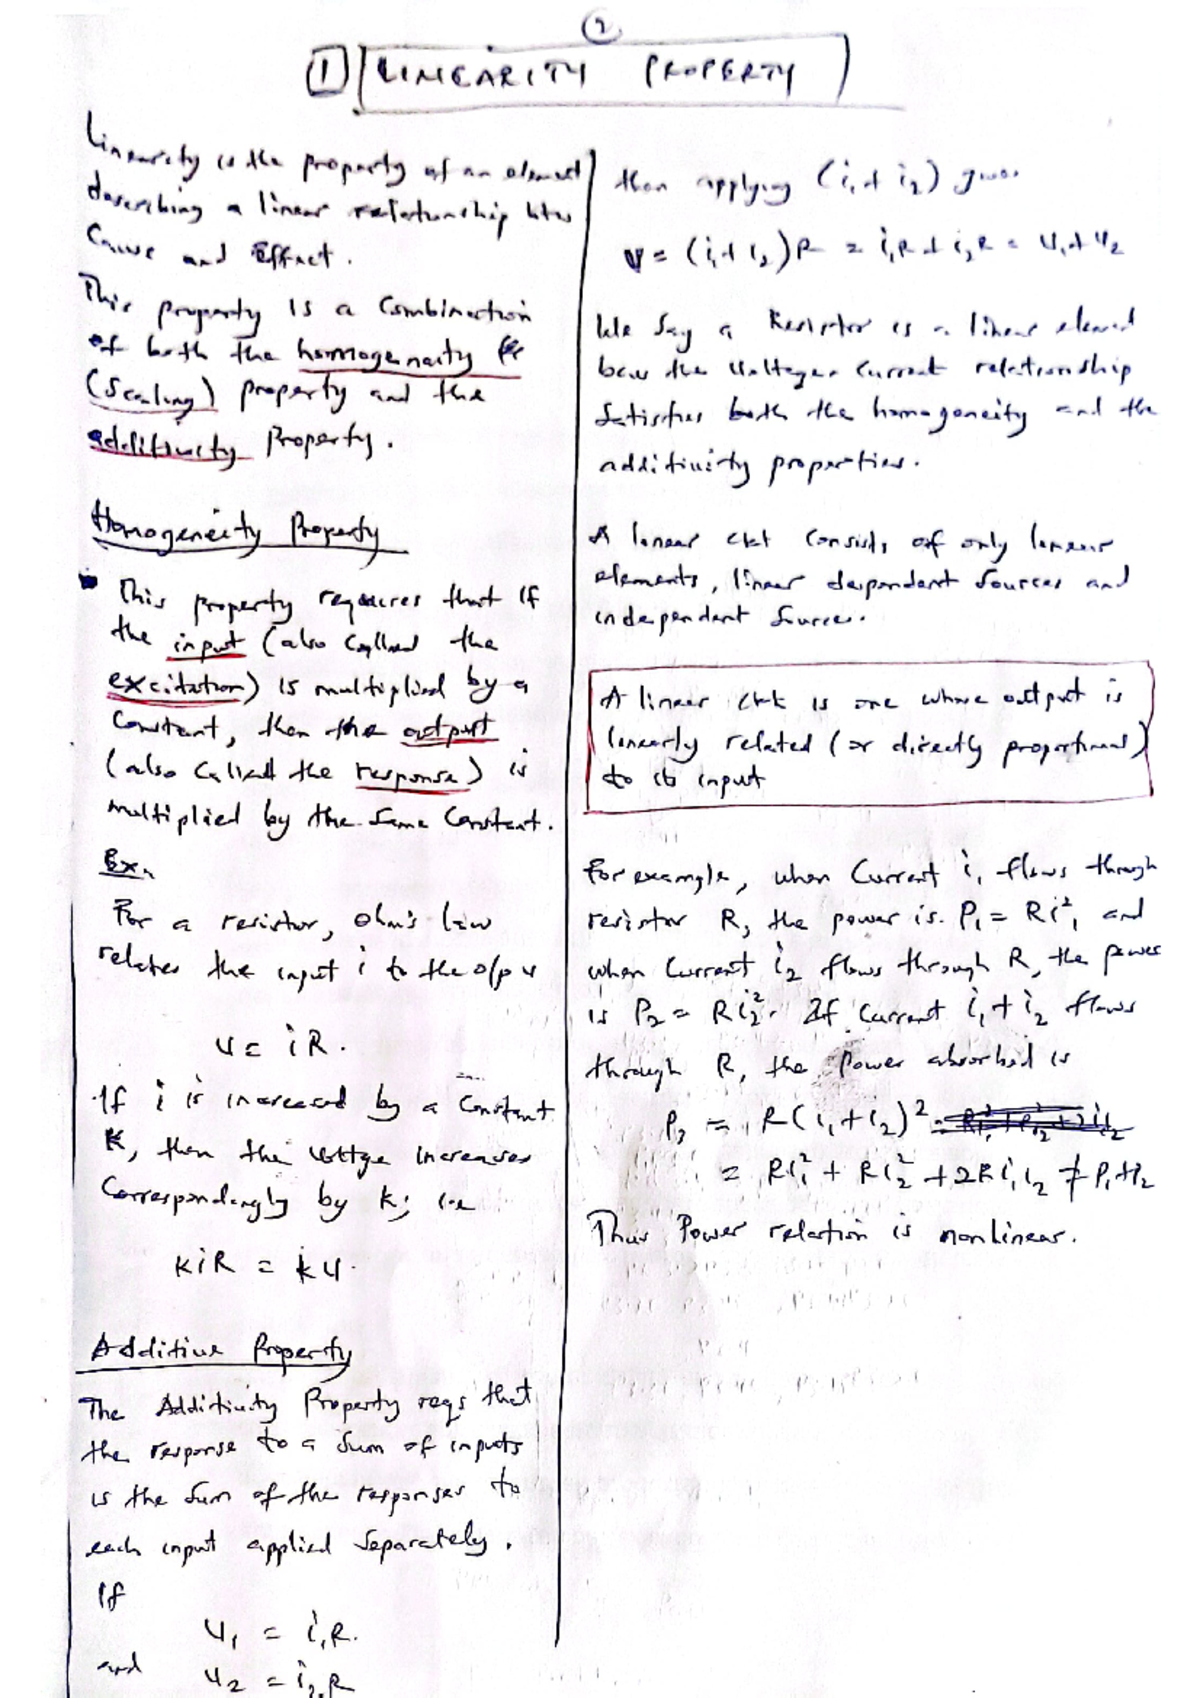 2
1 LINEARITY PROPERTY
Linearity is the property of an element
describing a linear relationship btw
Cause and Effect.
This property is a combination
of both the homogeneity
(scaling) property and the
additivity Property.
Homogeneity Property
This property requires that if
the input (also called the
excitation) is multiplied by a
constant, then the output
(also called the response) is
multiplied by the same constant.
Ex.
For a resistor, ohm's law
relates the input i to the o/p v
v = iR.
If i is increased by a constant
K, then the voltage increases
correspondingly by k; i.e
KiR = kv.
Additive Property
The Additivity Property reqs that
the response to a sum of inputs
is the sum of the responses to
each input applied separately.
If
v₁ = i₁R.
and v₂ = i₂R
then applying (i₁ + i₂) gives
v = (i₁ + i₂)R = i₁R + i₂R = v₁ + v₂
We say a Resistor is a linear element
bcus the voltage-current relationship
satisfies both the homogeneity and the
additivity properties.
A linear ckt consists of only linear
elements, linear dependent sources and
independent source.
A linear ckt is one whose output is
linearly related (or directly proportional)
to its input
For example, when current i₁ flows through
resistor R, the power is P₁ = Ri²₁ and
when current i₂ flows through R, the power
is P₂ = Ri₂². If current i₁ + i₂ flows
through R, the power absorbed is
P₃ = R(i₁+i₂)²
= Ri₁² + Ri₂² + 2Ri₁i₂ ≠ P₁+P₂
Thus Power relation is nonlinear.